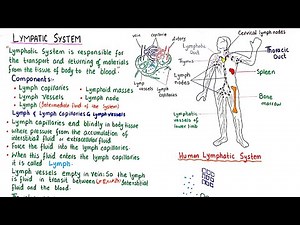 LYMPATIC SYSTEM
"Lymphatic System is responsible for
the transport and returning of materials
from the tissue of body to the blood."
Components:-
Lymph capillaries
Lymphoid masses
Lymph vessels
Lymph node
Lymph (Intermediate fluid of the System)
Lymph & Lymph Capillaries & Lymph vessels
Lymph capillaries end blindly in body tissue
where pressure from the accumulation of
interstitial fluid or extracellular fluid
Force the fluid into the lymph capillaries.
When this fluid enters the lymph capillaries
it is called Lymph.
Lymph vessels empty in vein: So the lymph
fluid in transit between interstitial
fluid and the blood.
vein
capillaries
artery
lymph
vessels
lymph
capillaries
Cervical lymph nodes
Lymphatic
Duct
Thymus
Lymph
Node
Thoracic
Duct
Spleen
Bone
marrow
Lymphatic
vessels of
lower limb
Human Lymphatic System